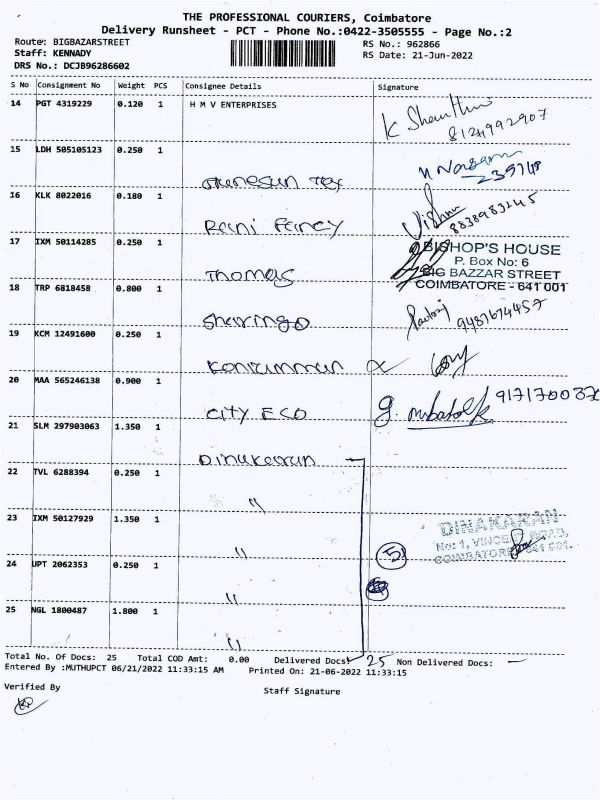 THE PROFESSIONAL COURIERS, Coimbatore
Delivery Runsheet - PCT - Phone No.:0422-3505555 - Page No.:2
Route: BIGBAZARSTREET RS No.: 962866
Staff: KENNADY RS Date: 21-Jun-2022
DRS No.: DCJB96286602
S No Consignment No Weight PCS Consignee Details Signature
14 PGT 4319229 0.120 1 H M V ENTERPRISES
K. Shanthi
8124992907
15 LDH 505105123 0.250 1
239748
16 KLK 8022016 0.180 1
Rani Fancy Vishnu
8838983245
17 IXM 50114285 0.250 1
Thomas
BISHOP'S HOUSE
P. Box No: 6
BIG BAZZAR STREET
COIMBATORE - 641 001
18 TRP 6818458 0.800 1
Sharingo
9487674457
19 KCM 12491600 0.250 1
20 MAA 565246138 0.900 1
CITY ECO
g.
21 SLM 297903063 1.350 1
Dinakaran
22 TVL 6288394 0.250 1
"
23 IXM 50127929 1.350 1
"
DINAKARAN
No: 1, VINCENT ROAD,
COIMBATORE - 641 001.
24 UPT 2062353 0.250 1
"
5
25 NGL 1800487 1.800 1
"
Total No. Of Docs: 25 Total COD Amt: 0.00 Delivered Docs: 25 Non Delivered Docs: —
Entered By :MUTHUPCT 06/21/2022 11:33:15 AM Printed On: 21-06-2022 11:33:15
Verified By Staff Signature